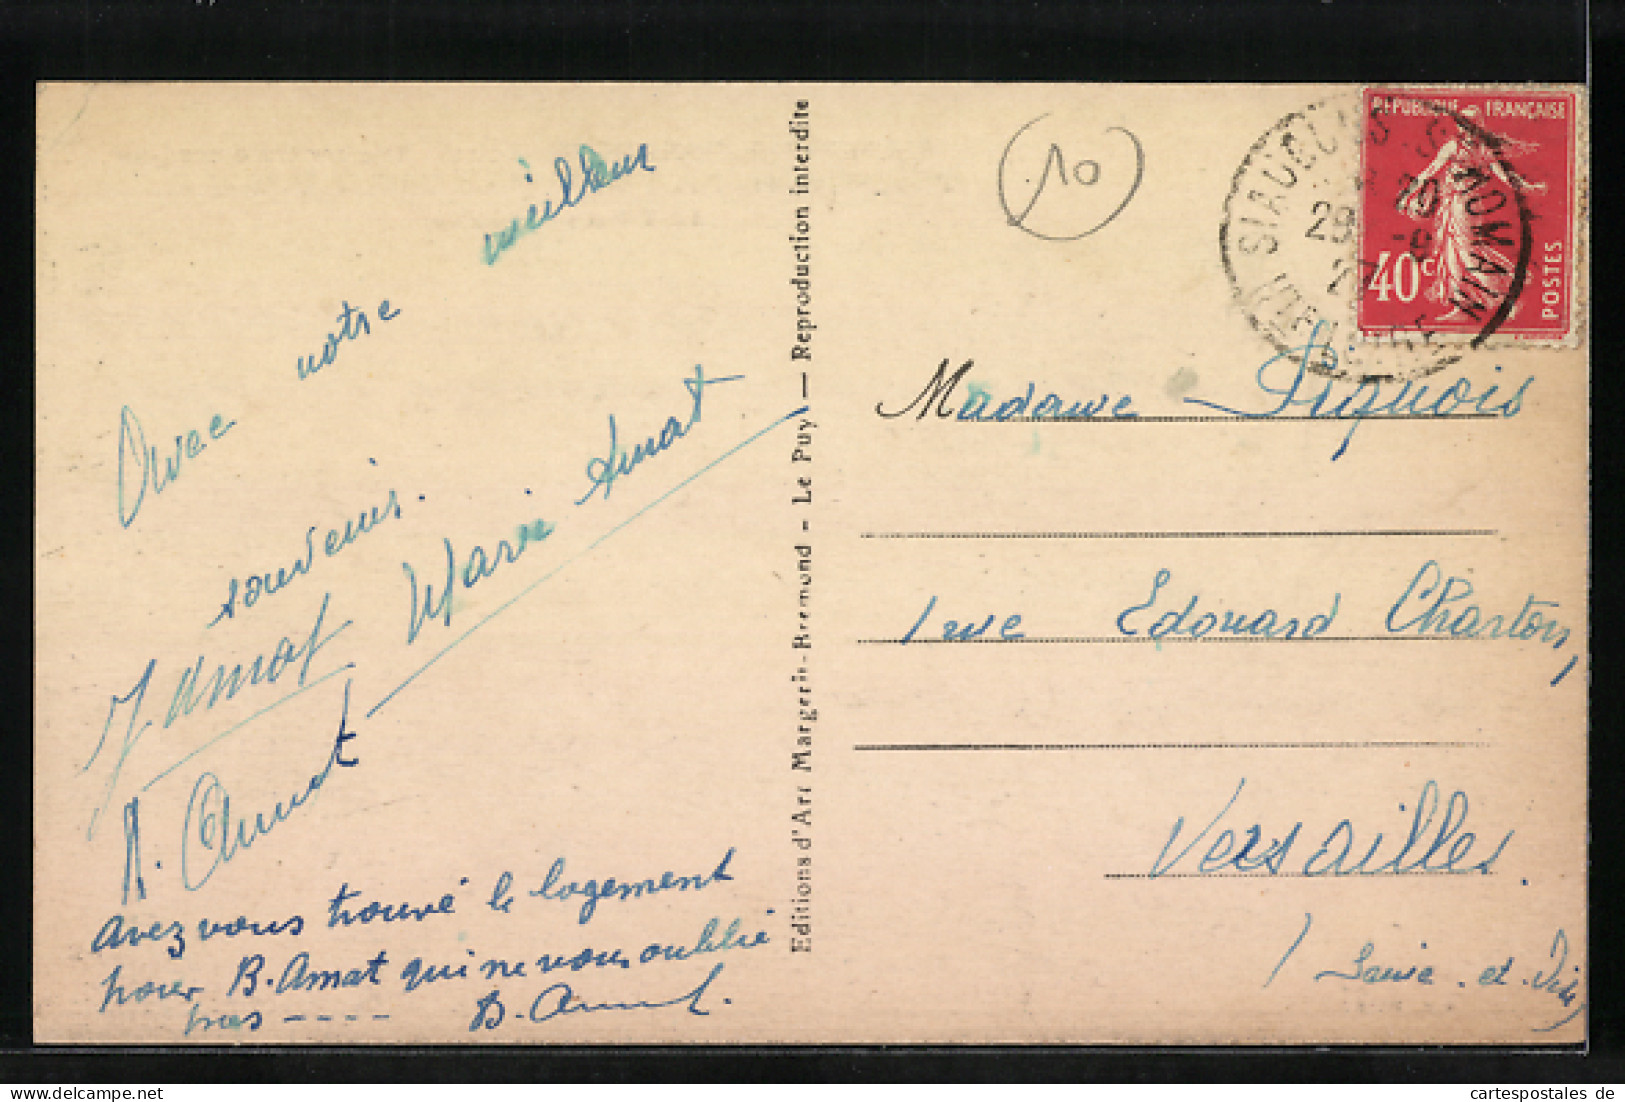 Avec notre meilleur
souvenir.
J Amat Marie Amat
A. Amat
Avez vous trouvé le logement
pour B. Amat qui ne vous oublie
pas ----
B. Amat.
Editions d'Art Margerit-Bremond - Le Puy — Reproduction interdite
10
REPUBLIQUE FRANÇAISE
40c
POSTES
SIAUGUES S ROMAIN
HTE LOIRE
29
Madame Piquois
1 rue Edouard Charton,
Versailles.
(Seine-et-Oise)
cartespostales de